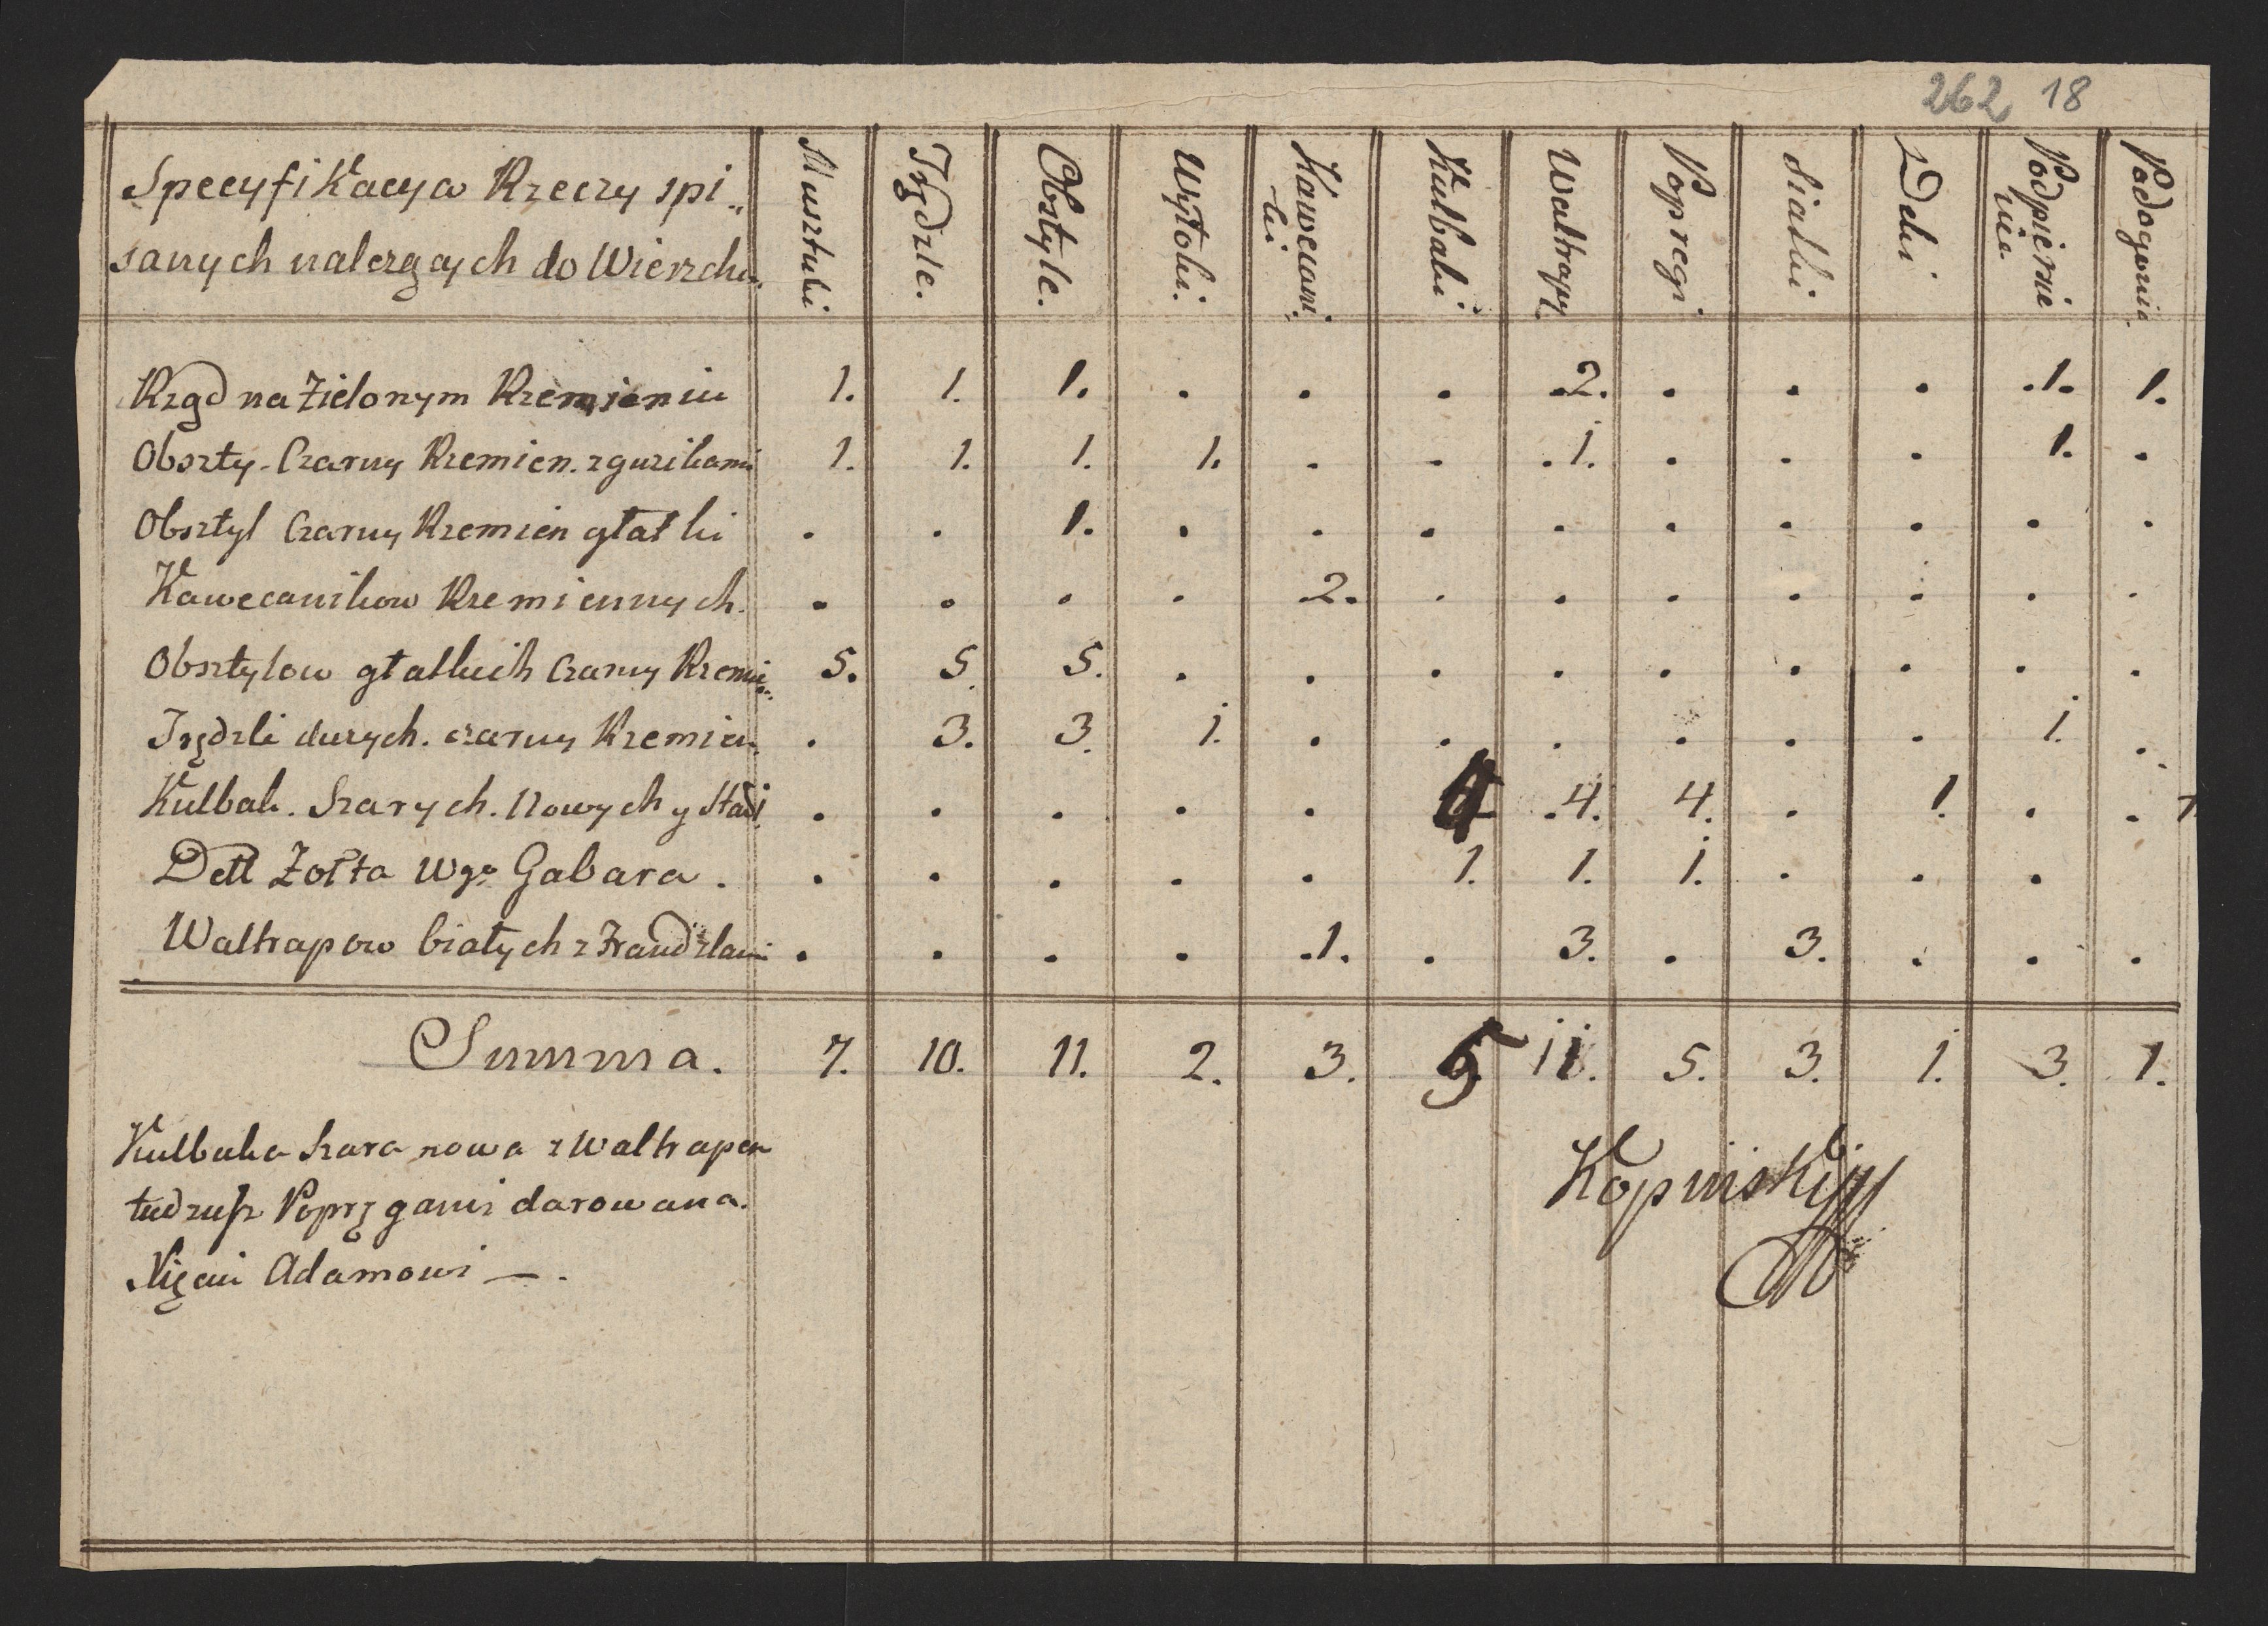 262 18
Specyfikacya Rzeczy spi„
sanych nalezących do Wierzchu.
Musztuki
Tręzdle.
Obsztyle.
Wytoki.
Kawecani„
ki
Kulbaki
Waltrapy
Popregi
Siatki
Deki
Podpiersie
nia
Podogonia
Rząd na Zielonym Rzemieniu 1. 1. 1. . . . 2. . . . 1. 1.
Obszty. Czarny Rzemien. z guzikami 1. 1. 1. 1. . . 1. . . . 1. .
Obsztyl Czarny Rzemien głatki . . 1. . . . . . . . . .
Kawecanikow Rzemiennych. . . . . 2. . . . . . . .
Obsztylow głatkich Czarny Rzemię„ 5. 5. 5. . . . . . . . . .
Tręzdli duzych. czarny Rzemien. . 3. 3. 1. . . . . . . 1. .
Kulbak. Szarych. Nowych y Stad . . . . . 4 4. 4. . 1. . .
Dett Zołta Wgo Gabara . . . . . . 1. 1. 1. . . .
Waltrapow białych z Frandzlami . . . . 1. . 3. . 3. . . .
Summa. 7. 10. 11. 2. 3. 5 11. 5. 3. 1. 3. 1.
Kulbaka Szara nowa z Waltrapem
tudzusz Popręgami darowana.
Xięciu Adamowi — .
Kopinski